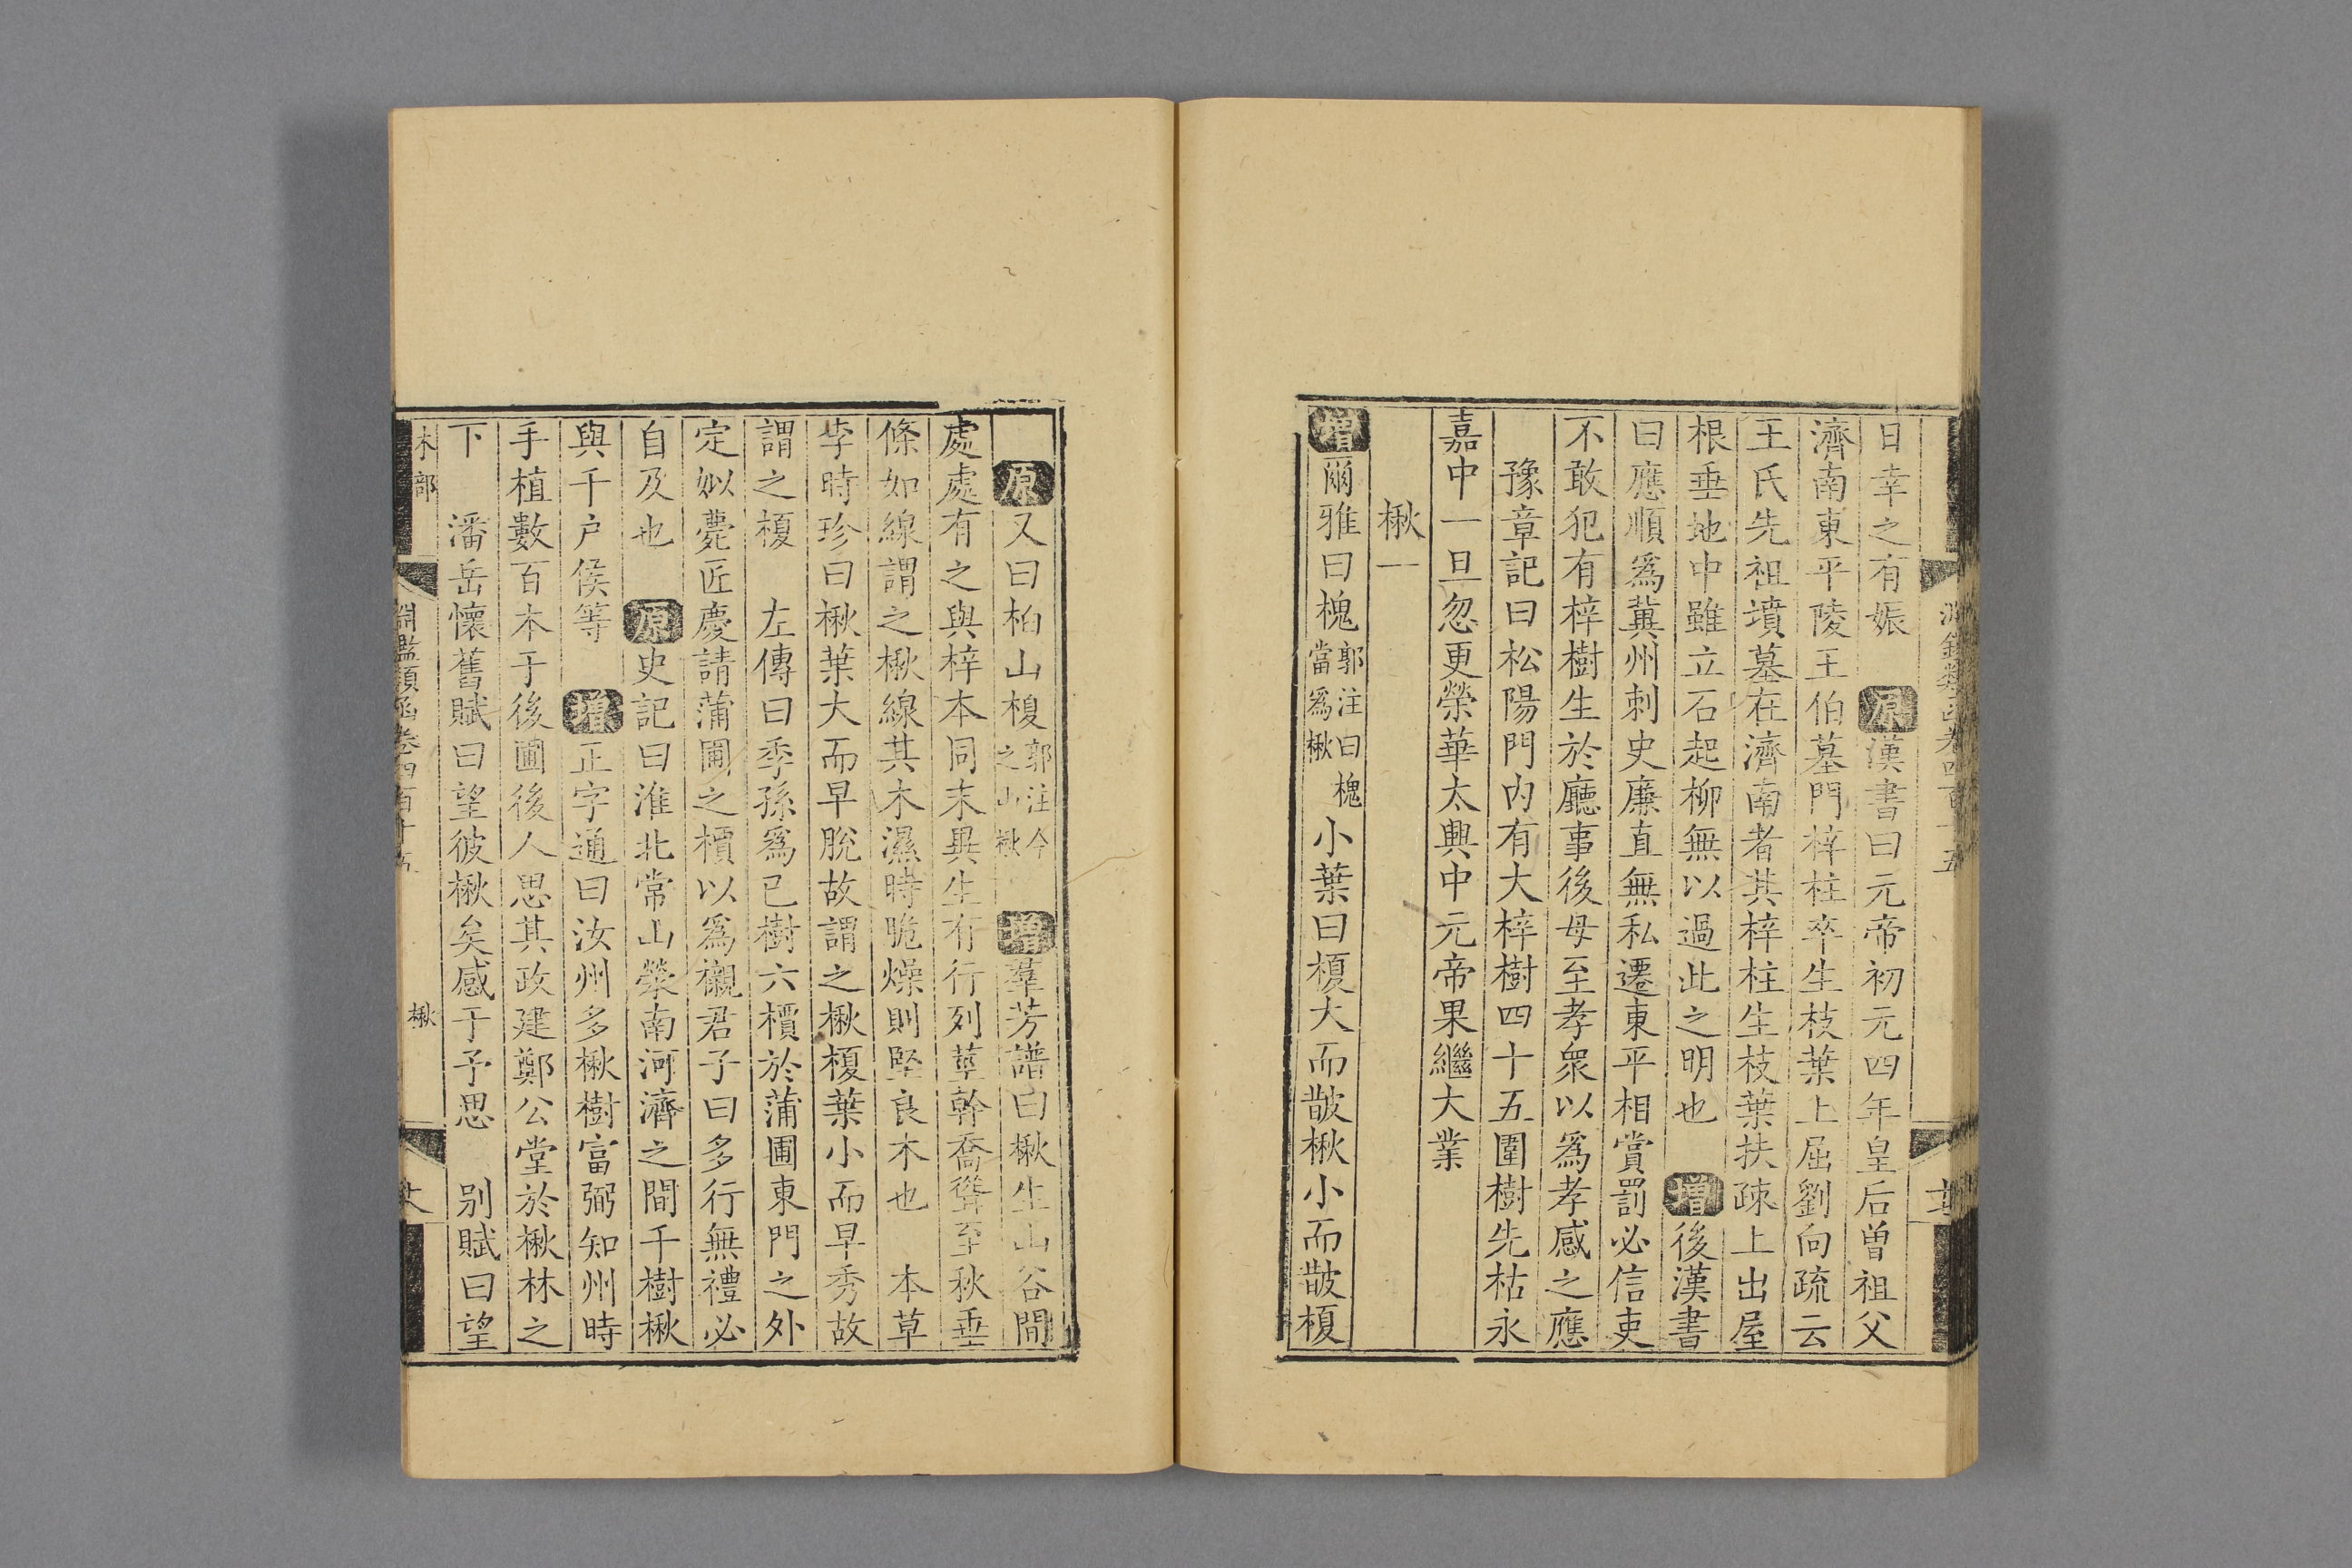 日幸之有娠　原漢書曰元帝初元四年皇后曾祖父
濟南東平陵王伯墓門梓柱卒生枝葉上屈劉向疏云
王氏先祖墳墓在濟南者其梓柱生枝葉扶疎上出屋
根垂地中雖立石起柳無以過此之明也　增後漢書
曰應順爲冀州刺史廉直無私遷東平相賞罰必信吏
不敢犯有梓樹生於廳事後母至孝衆以爲孝感之應
豫章記曰松陽門內有大梓樹四十五圍樹先枯永
嘉中一旦忽更榮華太興中元帝果繼大業
楸一
增爾雅曰槐郭注曰槐當爲楸小葉曰榎大而皵楸小而皵榎
原又曰柏山榎郭注今之山楸　增羣芳譜曰楸生山谷間
處處有之與梓本同末異生有行列莖幹喬聳至秋垂
條如線謂之楸線其木濕時脆燥則堅良木也　本草
李時珍曰楸葉大而早脫故謂之楸榎葉小而早秀故
謂之榎　左傳曰季孫爲己樹六檟於蒲圃東門之外
定姒薨匠慶請蒲圃之檟以爲櫬君子曰多行無禮必
自及也　原史記曰淮北常山滎南河濟之間千樹楸
與千戶侯等　增正字通曰汝州多楸樹富弼知州時
手植數百本于後圃後人思其政建鄭公堂於楸林之
下　潘岳懷舊賦曰望彼楸矣感于予思　別賦曰望
木部　淵鑑類函卷四百十五　楸